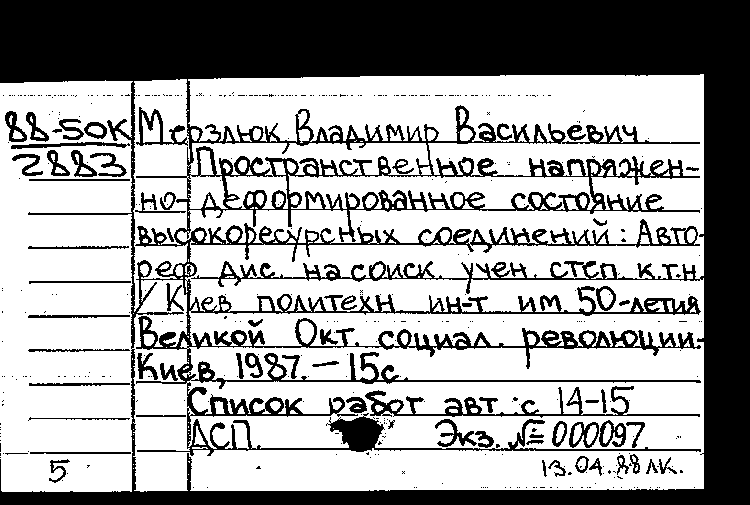 88-50К Мерзлюк, Владимир Васильевич.
2883 Пространственное напряжен-
но-деформированное состояние
высокоресурсных соединений: Авто-
реф. дис. на соиск. учен. степ. к.т.н.
/ Киев политехн ин-т им. 50-летия
Великой Окт. социал. революции.-
Киев, 1987. — 15с.
Список работ авт.: с 14-15
ДСП. Экз. № 000097
5 13.04.88 ЛК.